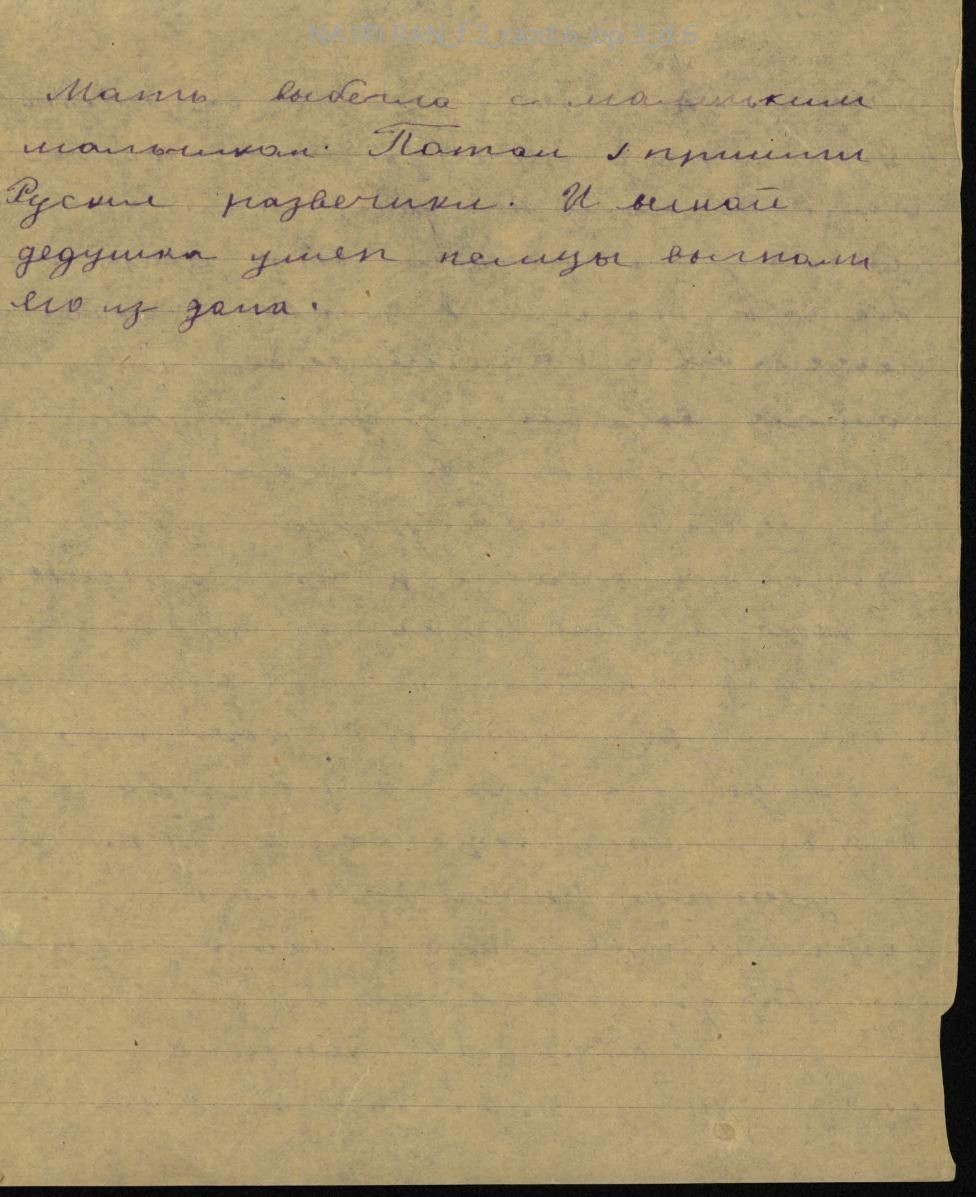 NA IRI RAN_f.2_razd.6_op.3_d.6
Мать выбегла с маленьким
мальчиком. Потом пришли
Руские развечики. И
дедушка умер немцы выгнали
его из дома.